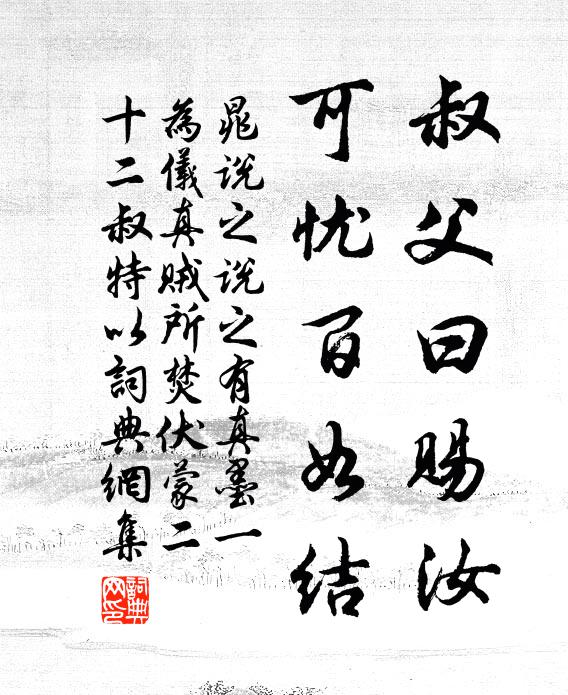 叔父曰賜汝
可忧百如结
晁说之说之有真墨一
為儀真贼所焚伏蒙二
十二叔特以詞典網集
詞典
网印